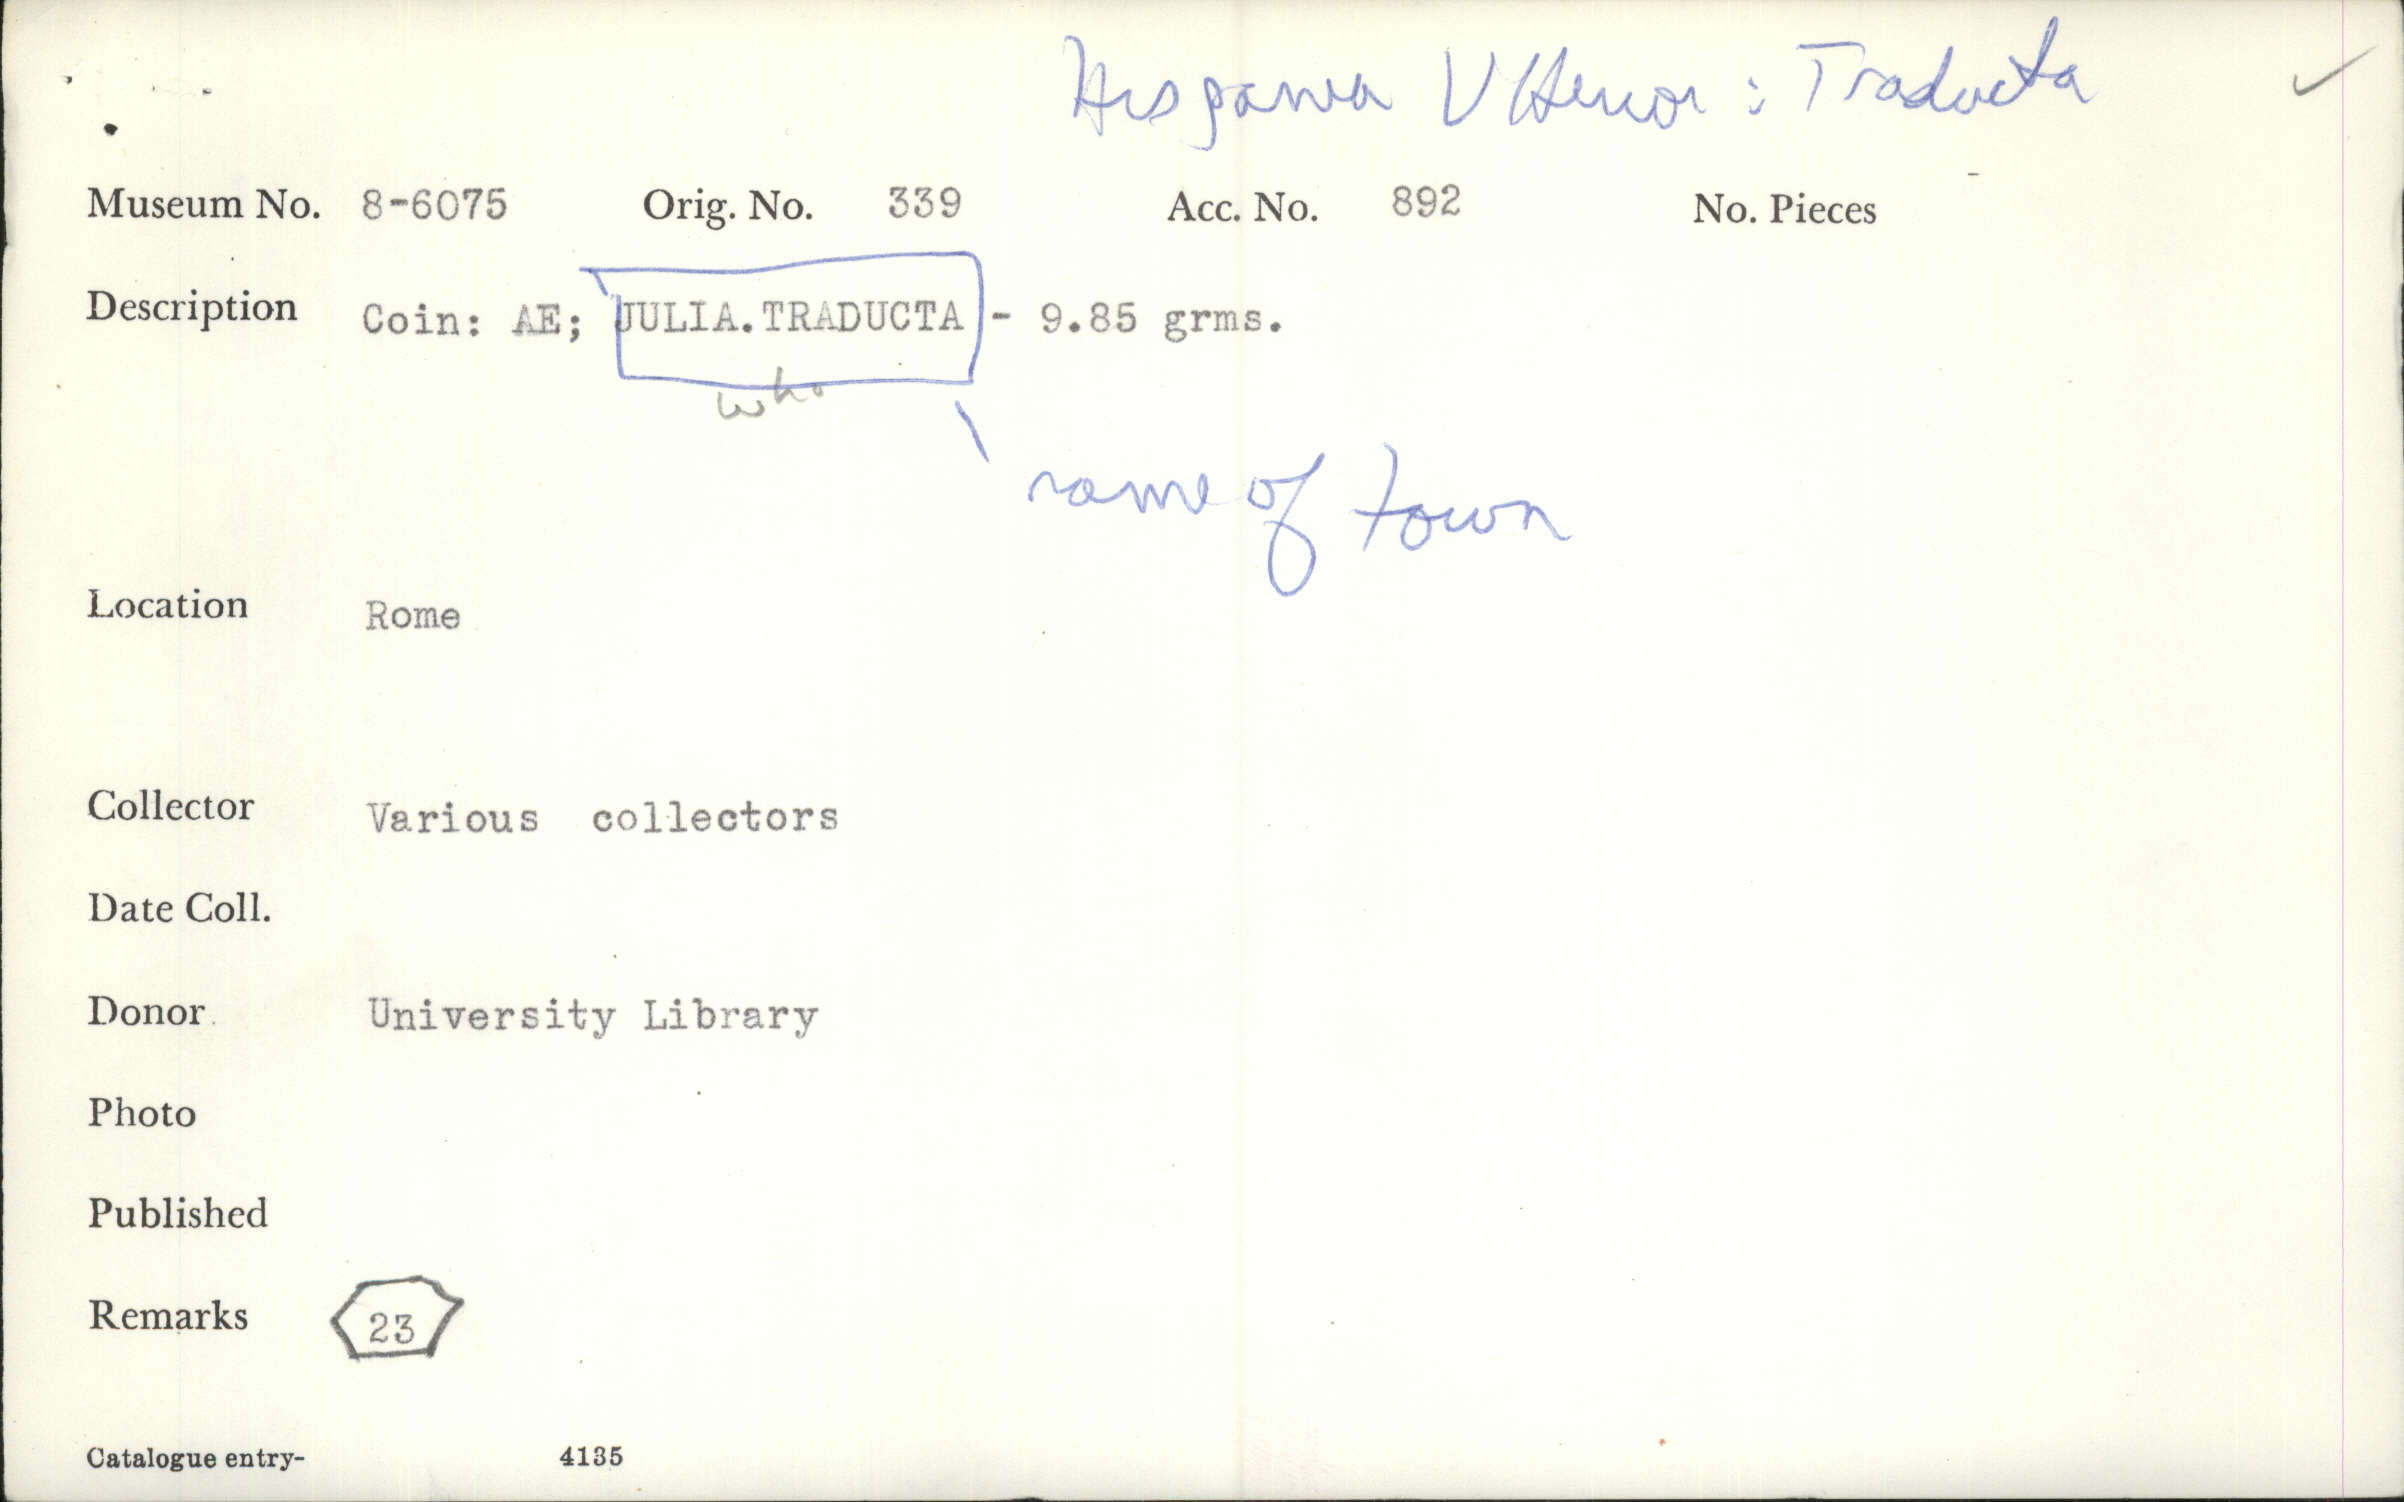 Hispania Ulterior : Traducta ✓
Museum No. 8-6075 Orig. No. 339 Acc. No. 892 No. Pieces
Description Coin: AE; JULIA.TRADUCTA - 9.85 grms.
who
name of town
Location Rome
Collector Various collectors
Date Coll.
Donor University Library
Photo
Published
Remarks 23
Catalogue entry- 4135